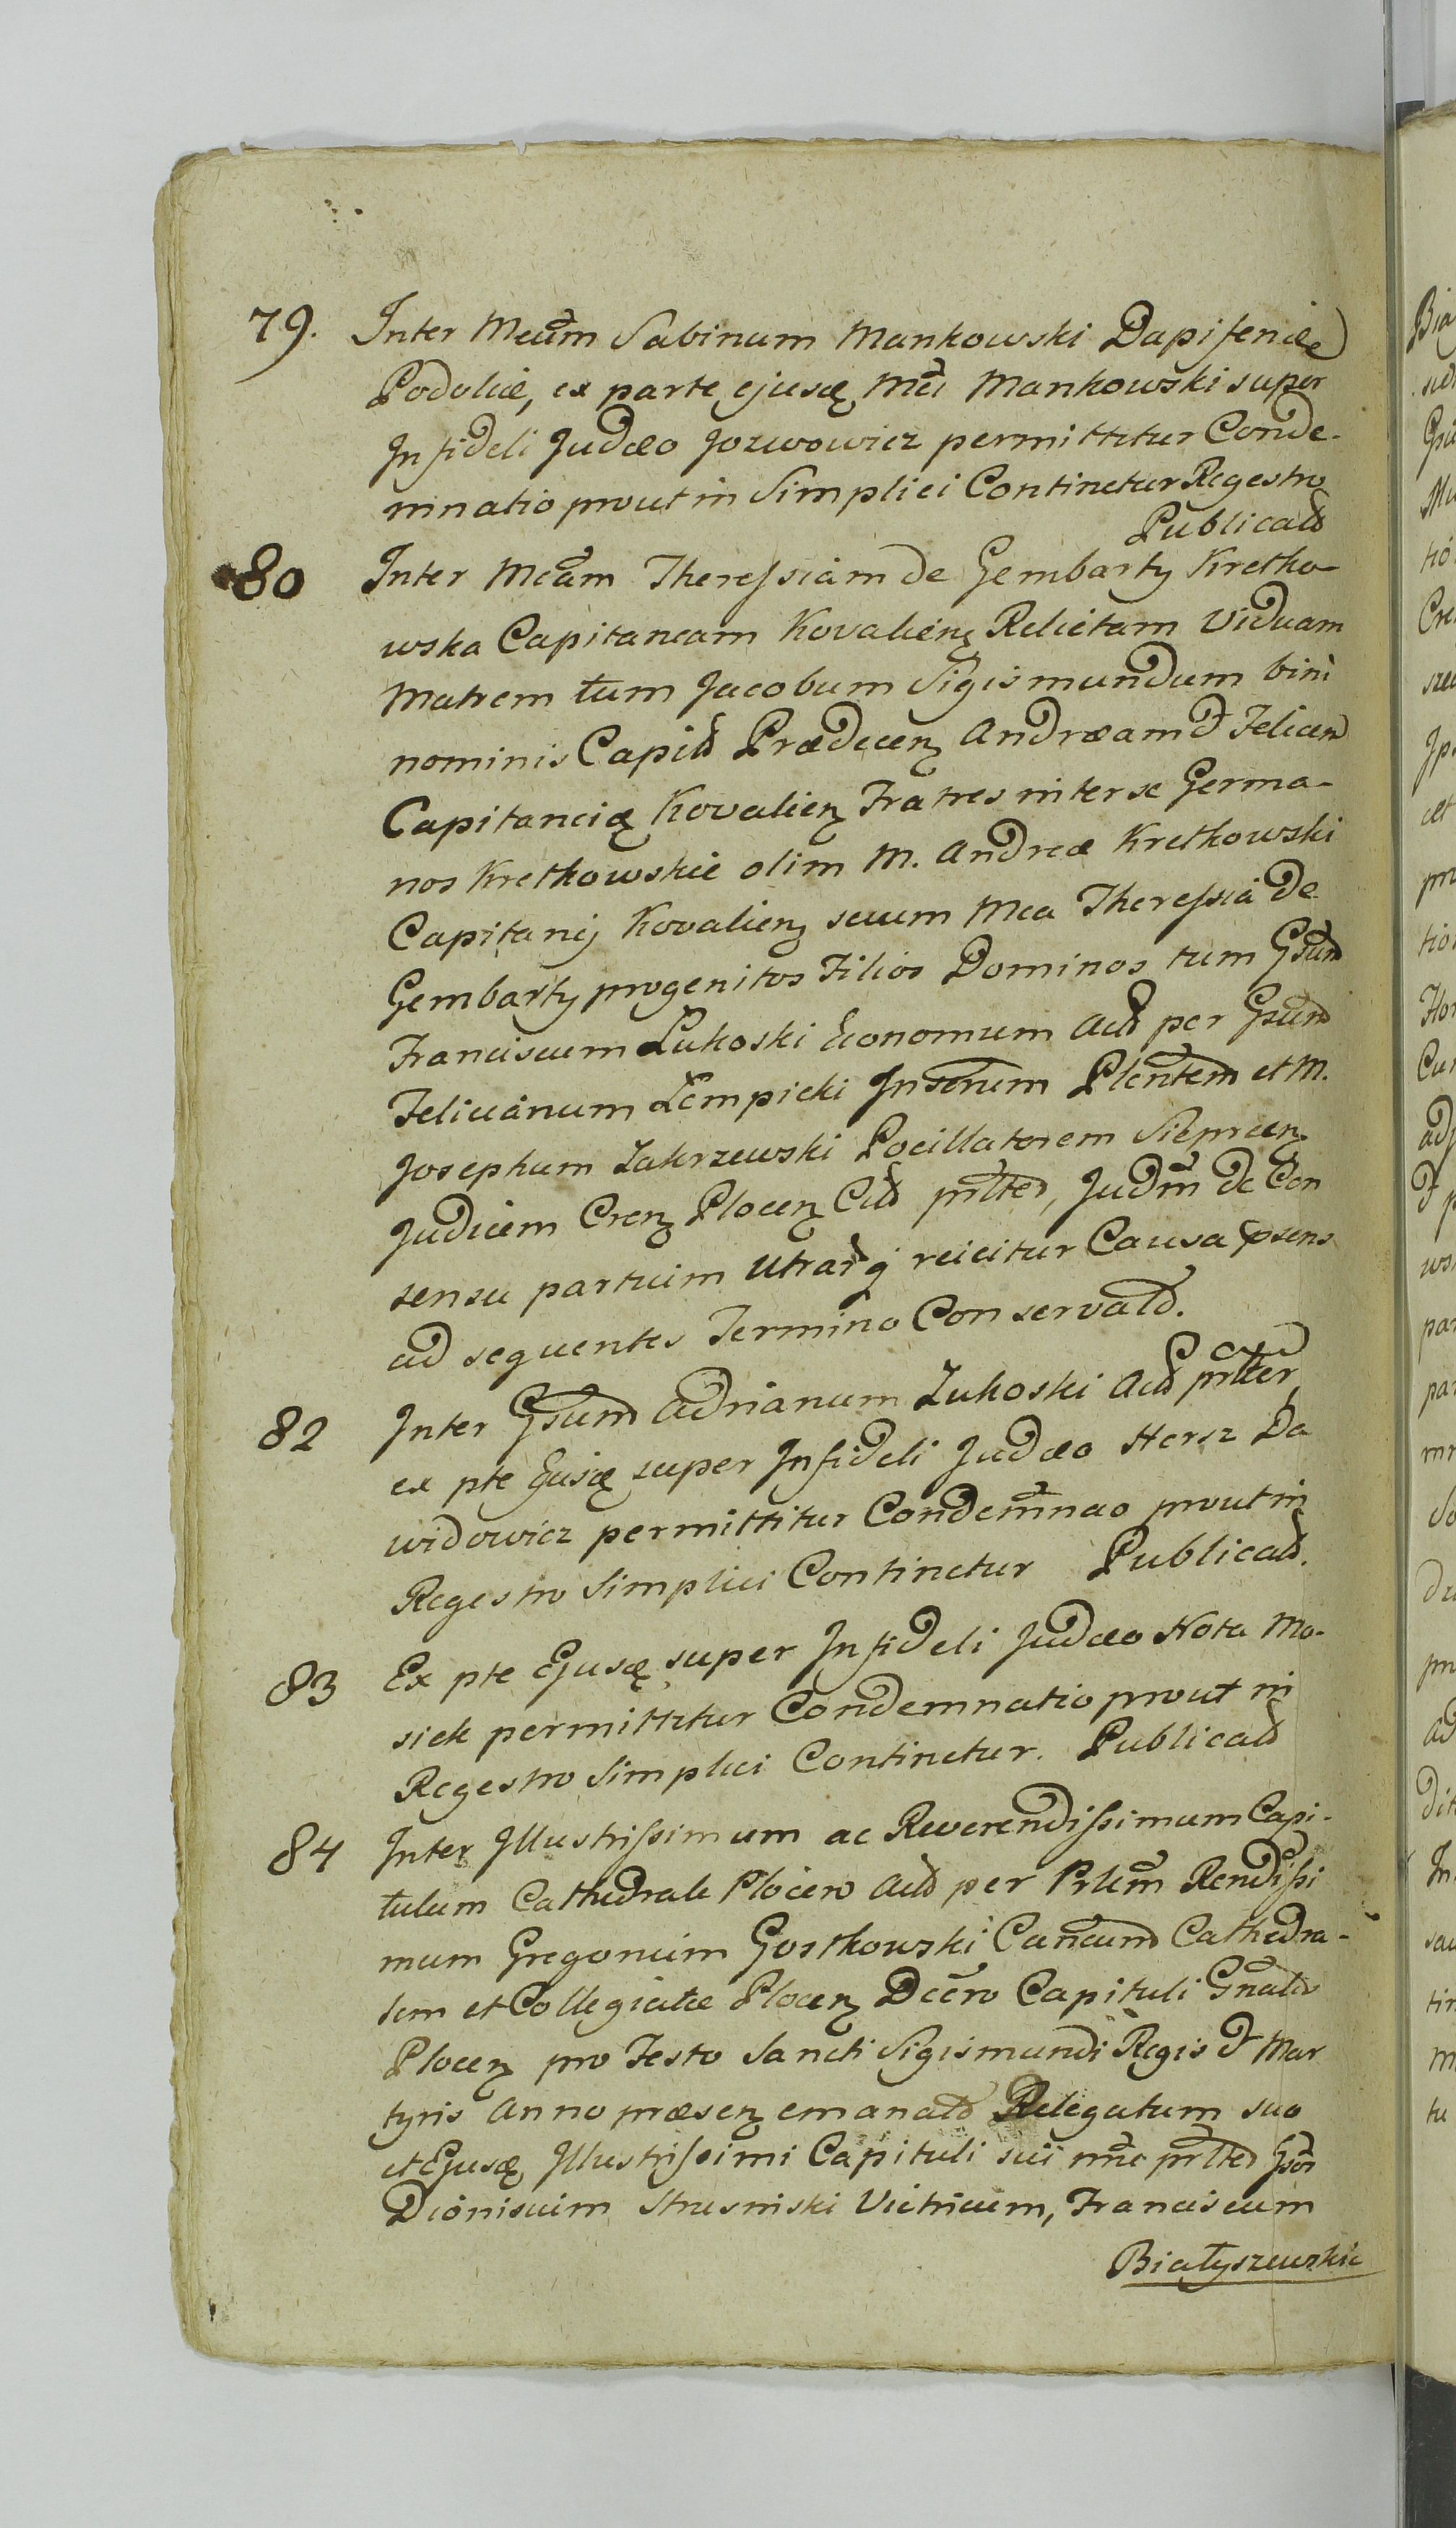 79. Inter Mcum Sabinum Mankowski Dapiferide
Podoliæ, ex parte ejusę Mci Mankowski super
Infideli Judæo Jozwowicz permittitur Conde-
mnatio prout in Simplici Continetur Regestro
Publicatd
80 Inter Mcam Theressiam de Gembarty Kretko-
wska Capitaneam Kovalienz Relictam Viduam
Matrem tum Jacobum Sigismundum bini
nominis Capitd Prædecenz Andræam & Felicem
Capitaneię Kovalienz Fratres inter se Germa-
nos Kretkowskie olim M. Andreæ Kretkowski
Capitanij Kovalienz secum Mca Theressia de
Gembarty progenitos Filios Dominos tum Gsum
Franciscum Lukoski Economum Actd per Gsum
Felicianum Łempicki Plentem et M.
Josephum Zakrzewski Pocillatorem Sieprcenz
Judicem Crenz Plocenz Citd prltes, Judm de Con
sensu partium Utrarq reicitur Causa psens
ad sequentes Termino Conservatd.
82 Inter Gsum Adrianum Zukoski Actd prlter
ex pte Ejusę super Infideli Judæo Hersz Da
widowicz permittitur Condemnao prout in
Regestro Simplici Continetur Publicatd.
83 Ex pte Ejusę super Infideli Judæo Nota Mo-
siek permittitur Condemnatio prout in
Regestro Simplici Continetur. Publicatd
84 Inter Illustrissimum ac Reverendissimum Capi-
tulum Cathedrale Plocen Actd per Prlem Rendissi
mum Gregorium Gostkowski Cathedra-
lem et Collegiatæ Plocenz Capituli Gnalis
Plocenz pro Festo Sancti Sigismundi Regis & Mar
tyris Anno præsenz emanatd Relegatum suo
et Ejusę Illustrissimi Capituli sui nnc prltes Gsos
Dionisium Strusinski Victricum, Franciscum
Białyszewskie